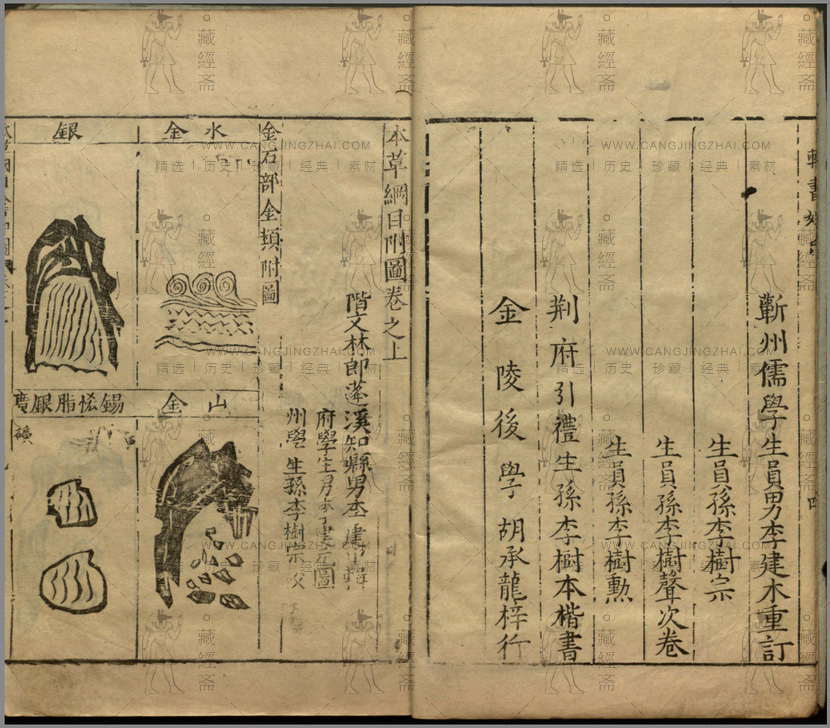 蘄州儒學生員男李建木重訂
生員孫李樹宗
生員孫李樹聲次卷
生員孫李樹勳
荆府引禮生孫李樹本楷書
金陵後學胡承龍梓行
本草綱目附圖卷之上
階文林郎蓬溪知縣男李建中輯
府學生男李建元圖
州學生孫李樹宗校
金石部金類附圖
水金
山金
銀
錫恡脂銀廣
礦
藏經斋
WWW.CANGJINGZHAI.COM
精选 | 历史 | 珍藏 | 经典 | 素材